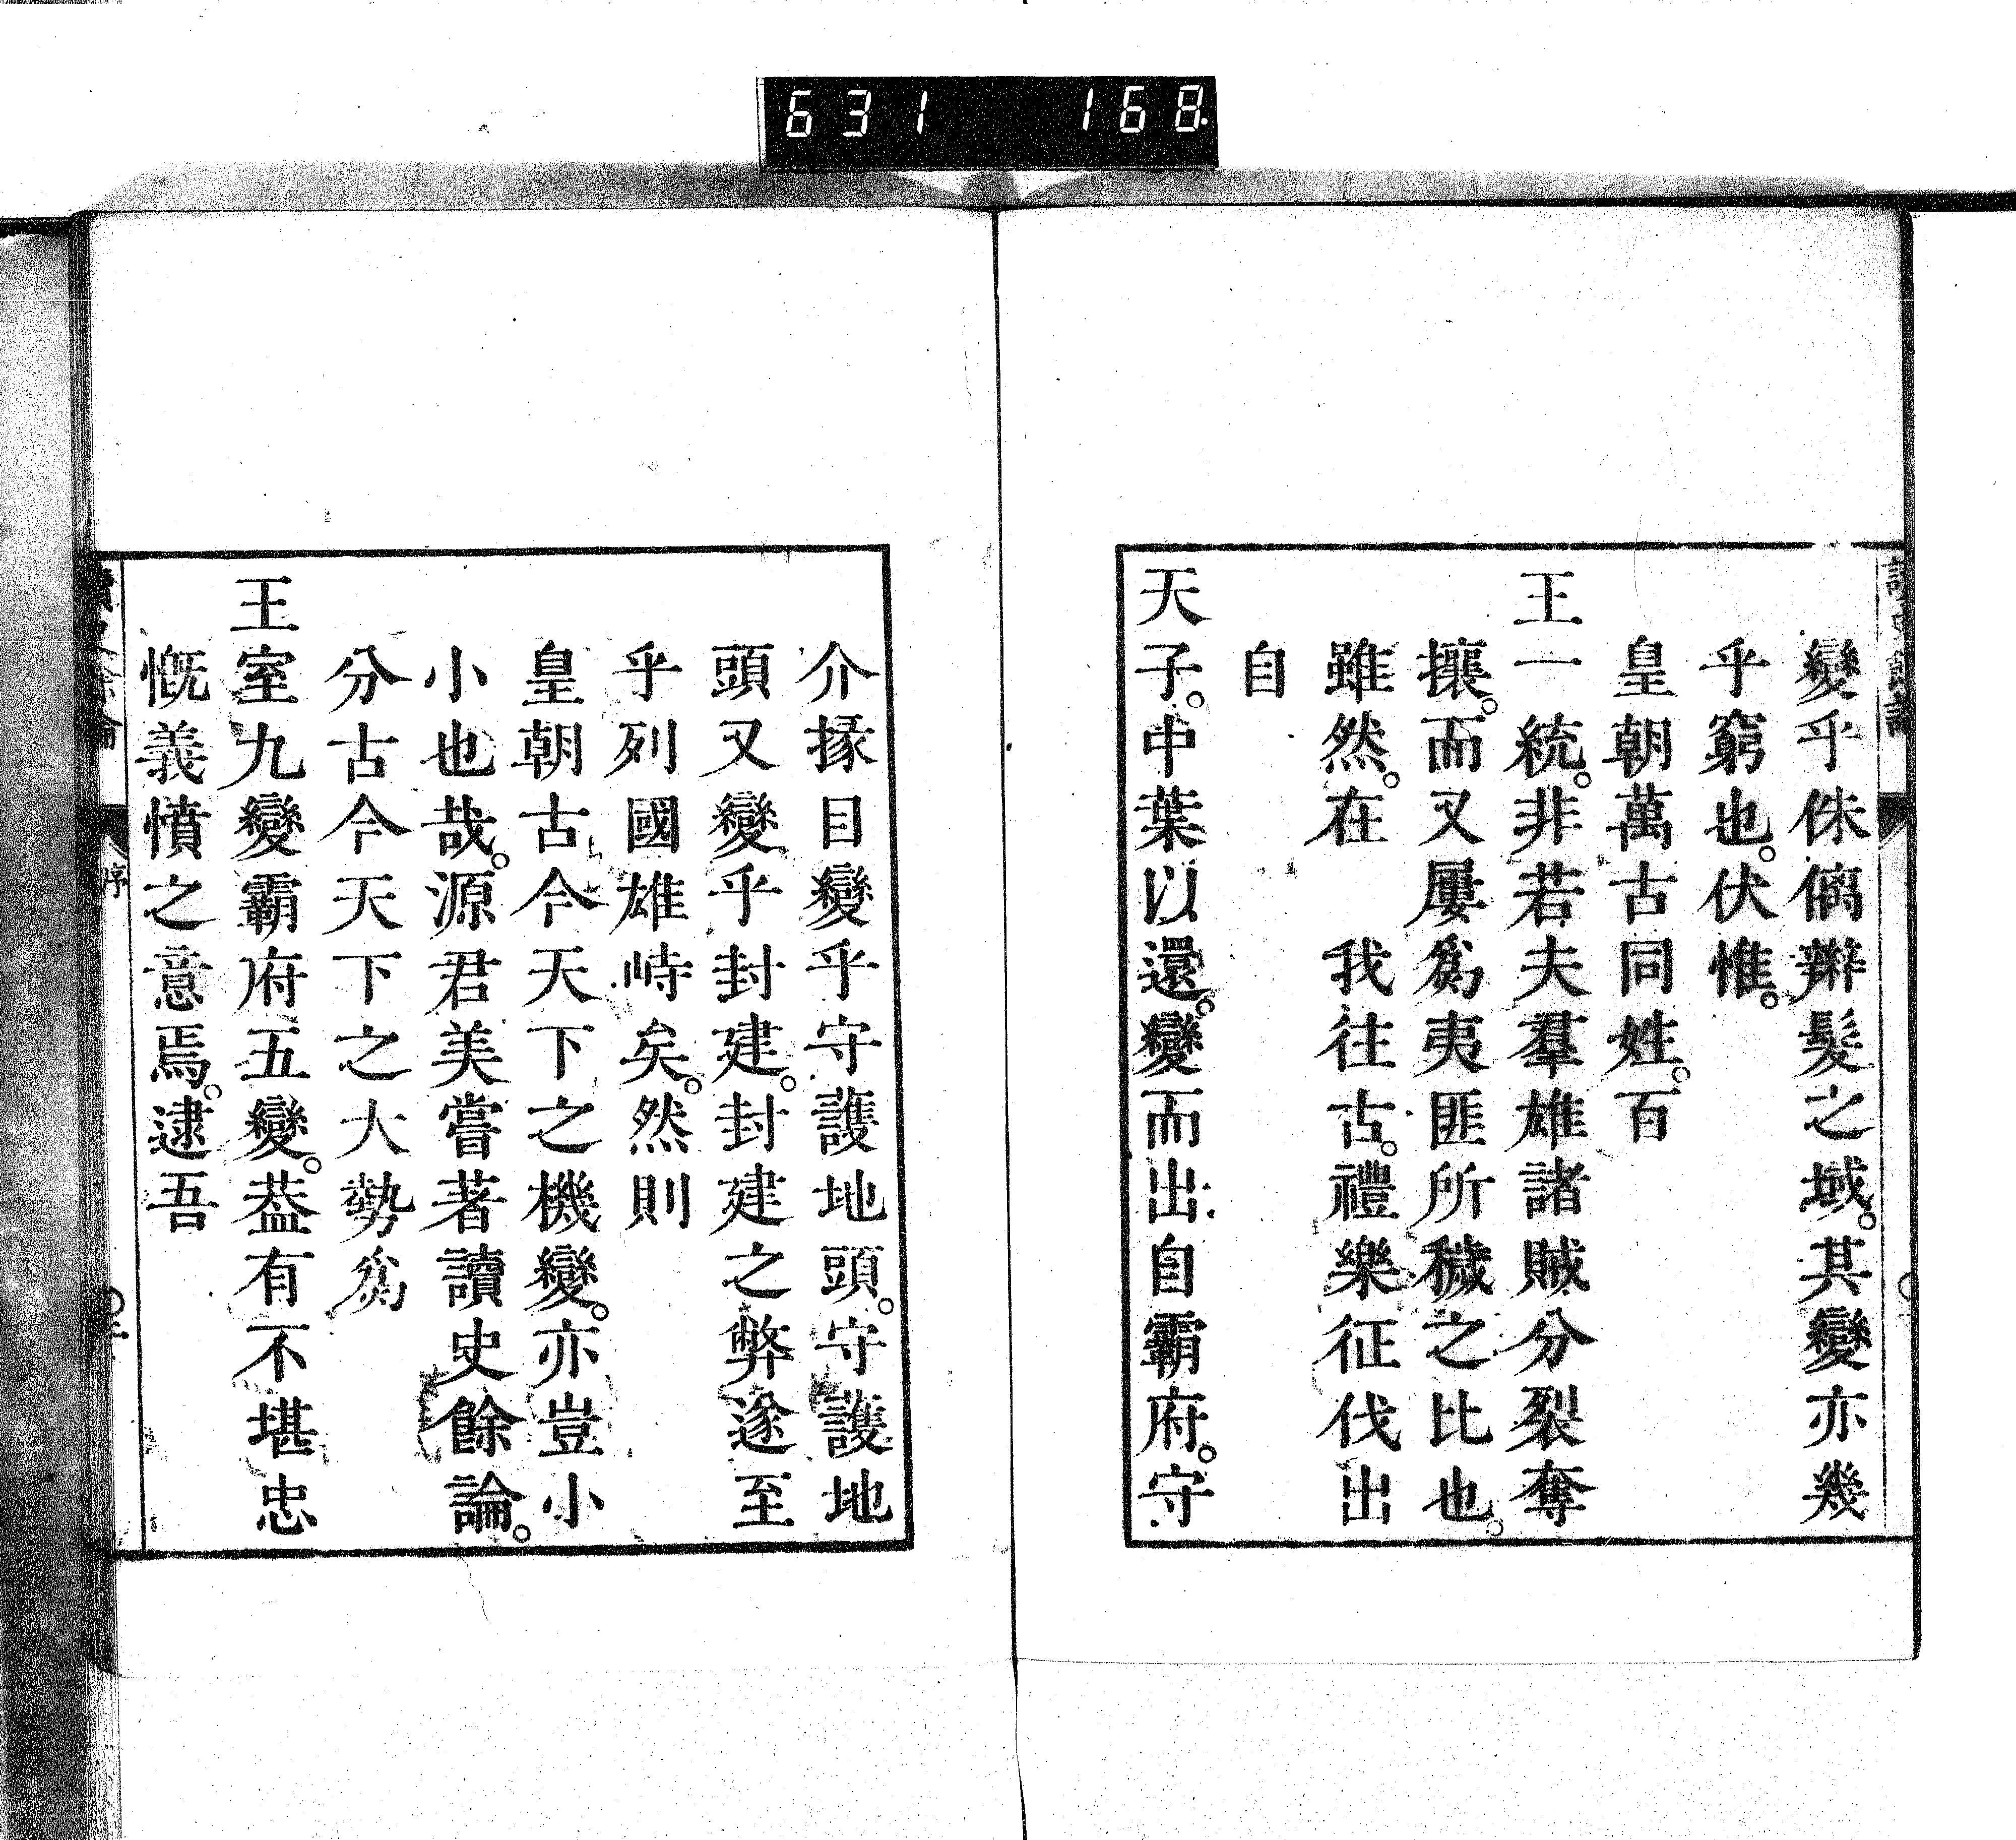 631 168
變乎侏𠌯辮髮之域。其變亦幾
乎窮也。伏惟。
皇朝萬古同姓。百
王一統。非若夫羣雄諸賊分裂奪
攘。而又屢爲夷匪所穢之比也。
雖然。在 我往古。禮樂征伐出
自
天子。中葉以還。變而出自霸府。守
介掾目變乎守護地頭。守護地
頭又變乎封建。封建之弊遂至
乎列國雄峙矣。然則
皇朝古今天下之機變。亦豈小
小也哉。源君美嘗著讀史餘論。
分古今天下之大勢爲
王室九變霸府五變。葢有不堪忠
慨義憤之意焉。逮吾
序